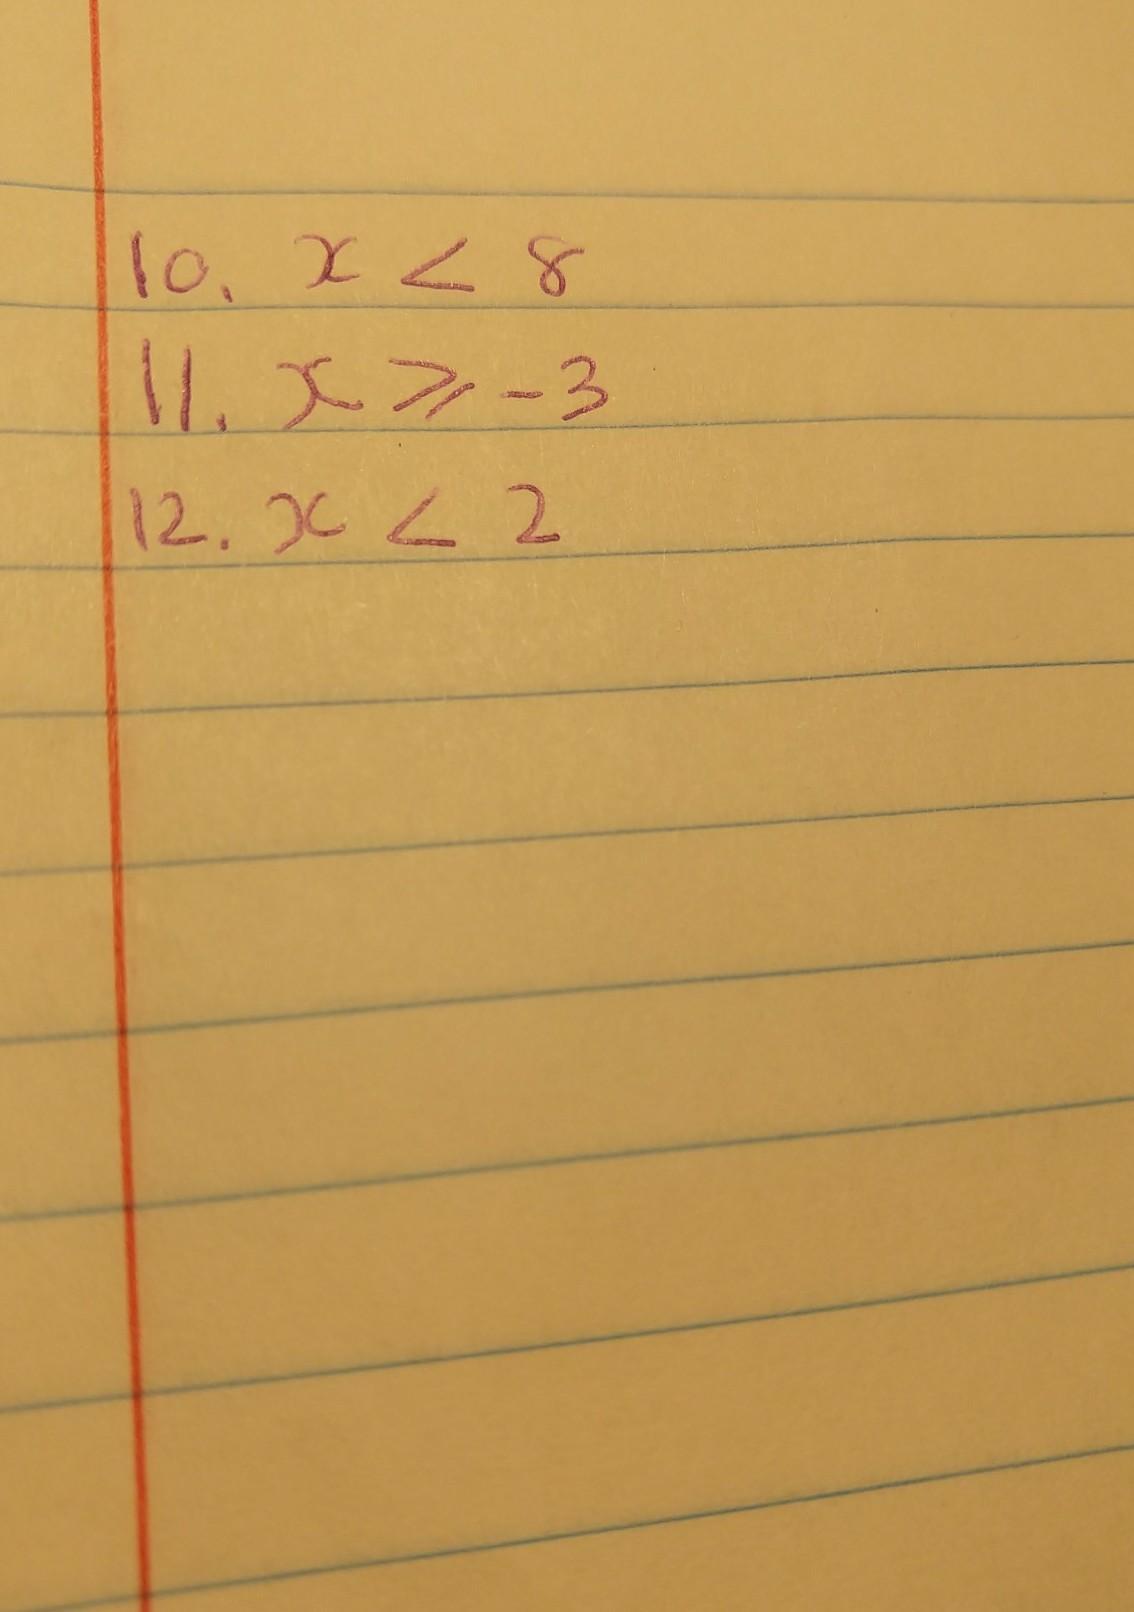 10. x < 8
11. x ⩾ -3
12. x < 2